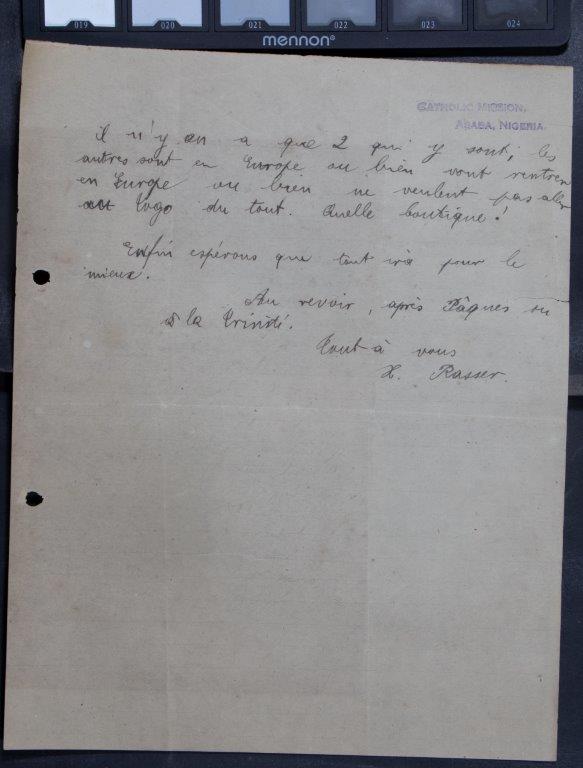 019 020 021 022 023 024
mennon®
CATHOLIC MISSION,
ASABA, NIGERIA.
il n'y en a que 2 qui y sont, les
autres sont en Europe ou bien vont rentrer
en Europe ou bien ne veulent pas aller
au Togo du tout. Quelle boutique!
Enfin espérons que tout ira pour le
mieux.
Au revoir, après Pâques ou
à la Trinité.
Tout à vous
X. Rasser.